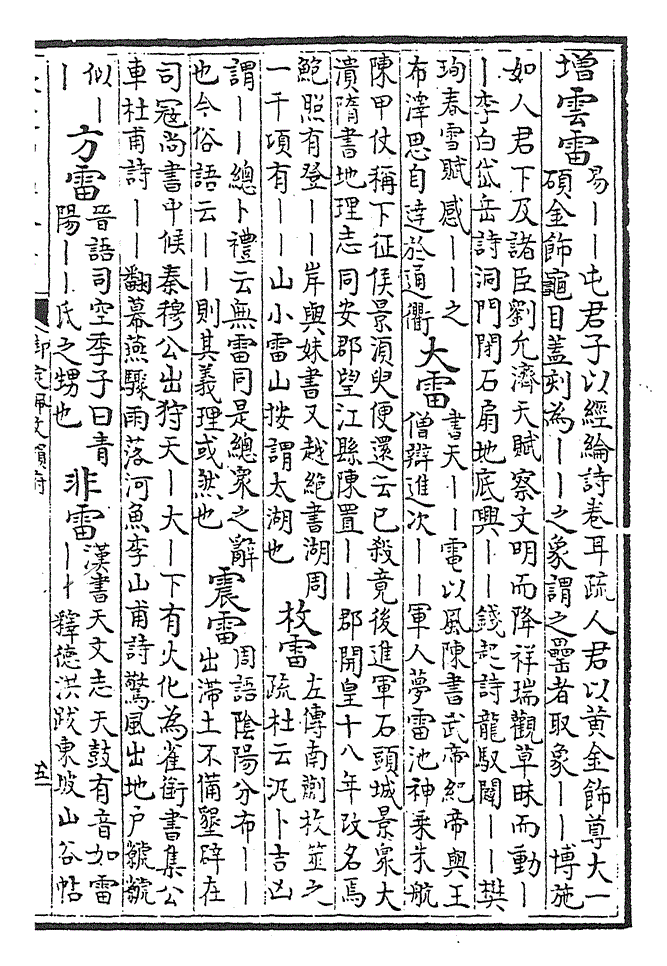 增雲雷
易丨丨屯君子以經綸詩卷耳疏人君以黃金飾尊大一
碩金飾龜目蓋刻為丨丨之象謂之罍者取象丨丨博施
如人君下及諸臣劉允濟天賦察文明而降祥瑞觀草昧而動丨
丨李白岱岳詩洞門閉石扇地底興丨丨錢起詩龍馭闢丨丨樊
珣春雪賦感丨丨之
布澤思自達於通衢
大雷
書天丨丨電以風陳書武帝紀帝與王
僧辯進次丨丨軍人夢雷池神乘朱航
陳甲仗稱下征侯景須臾便還云已殺竟後進軍石頭城景衆大
潰隋書地理志同安郡望江縣陳置丨丨郡開皇十八年改名焉
鮑照有登丨丨岸與妹書又越絕書湖周
一千項有丨丨山小雷山按謂太湖也
枚雷
左傳南蒯枚筮之
疏杜云汎卜吉凶
謂丨丨總卜禮云無雷同是總衆之辭
也今俗語云丨丨則其義理或然也
震雷
周語陰陽分布丨丨
出滯土不備墾辟在
司寇尚書中候秦穆公出狩天丨大丨下有火化為雀銜書集公
車杜甫詩丨丨翻幕燕驟雨落河魚李山甫詩驚風出地戶虩虩
似丨
丨
方雷
晉語司空季子曰青
陽丨丨氏之甥也
非雷
漢書天文志天鼓有音如雷
丨丨釋德洪跋東坡山谷帖
五